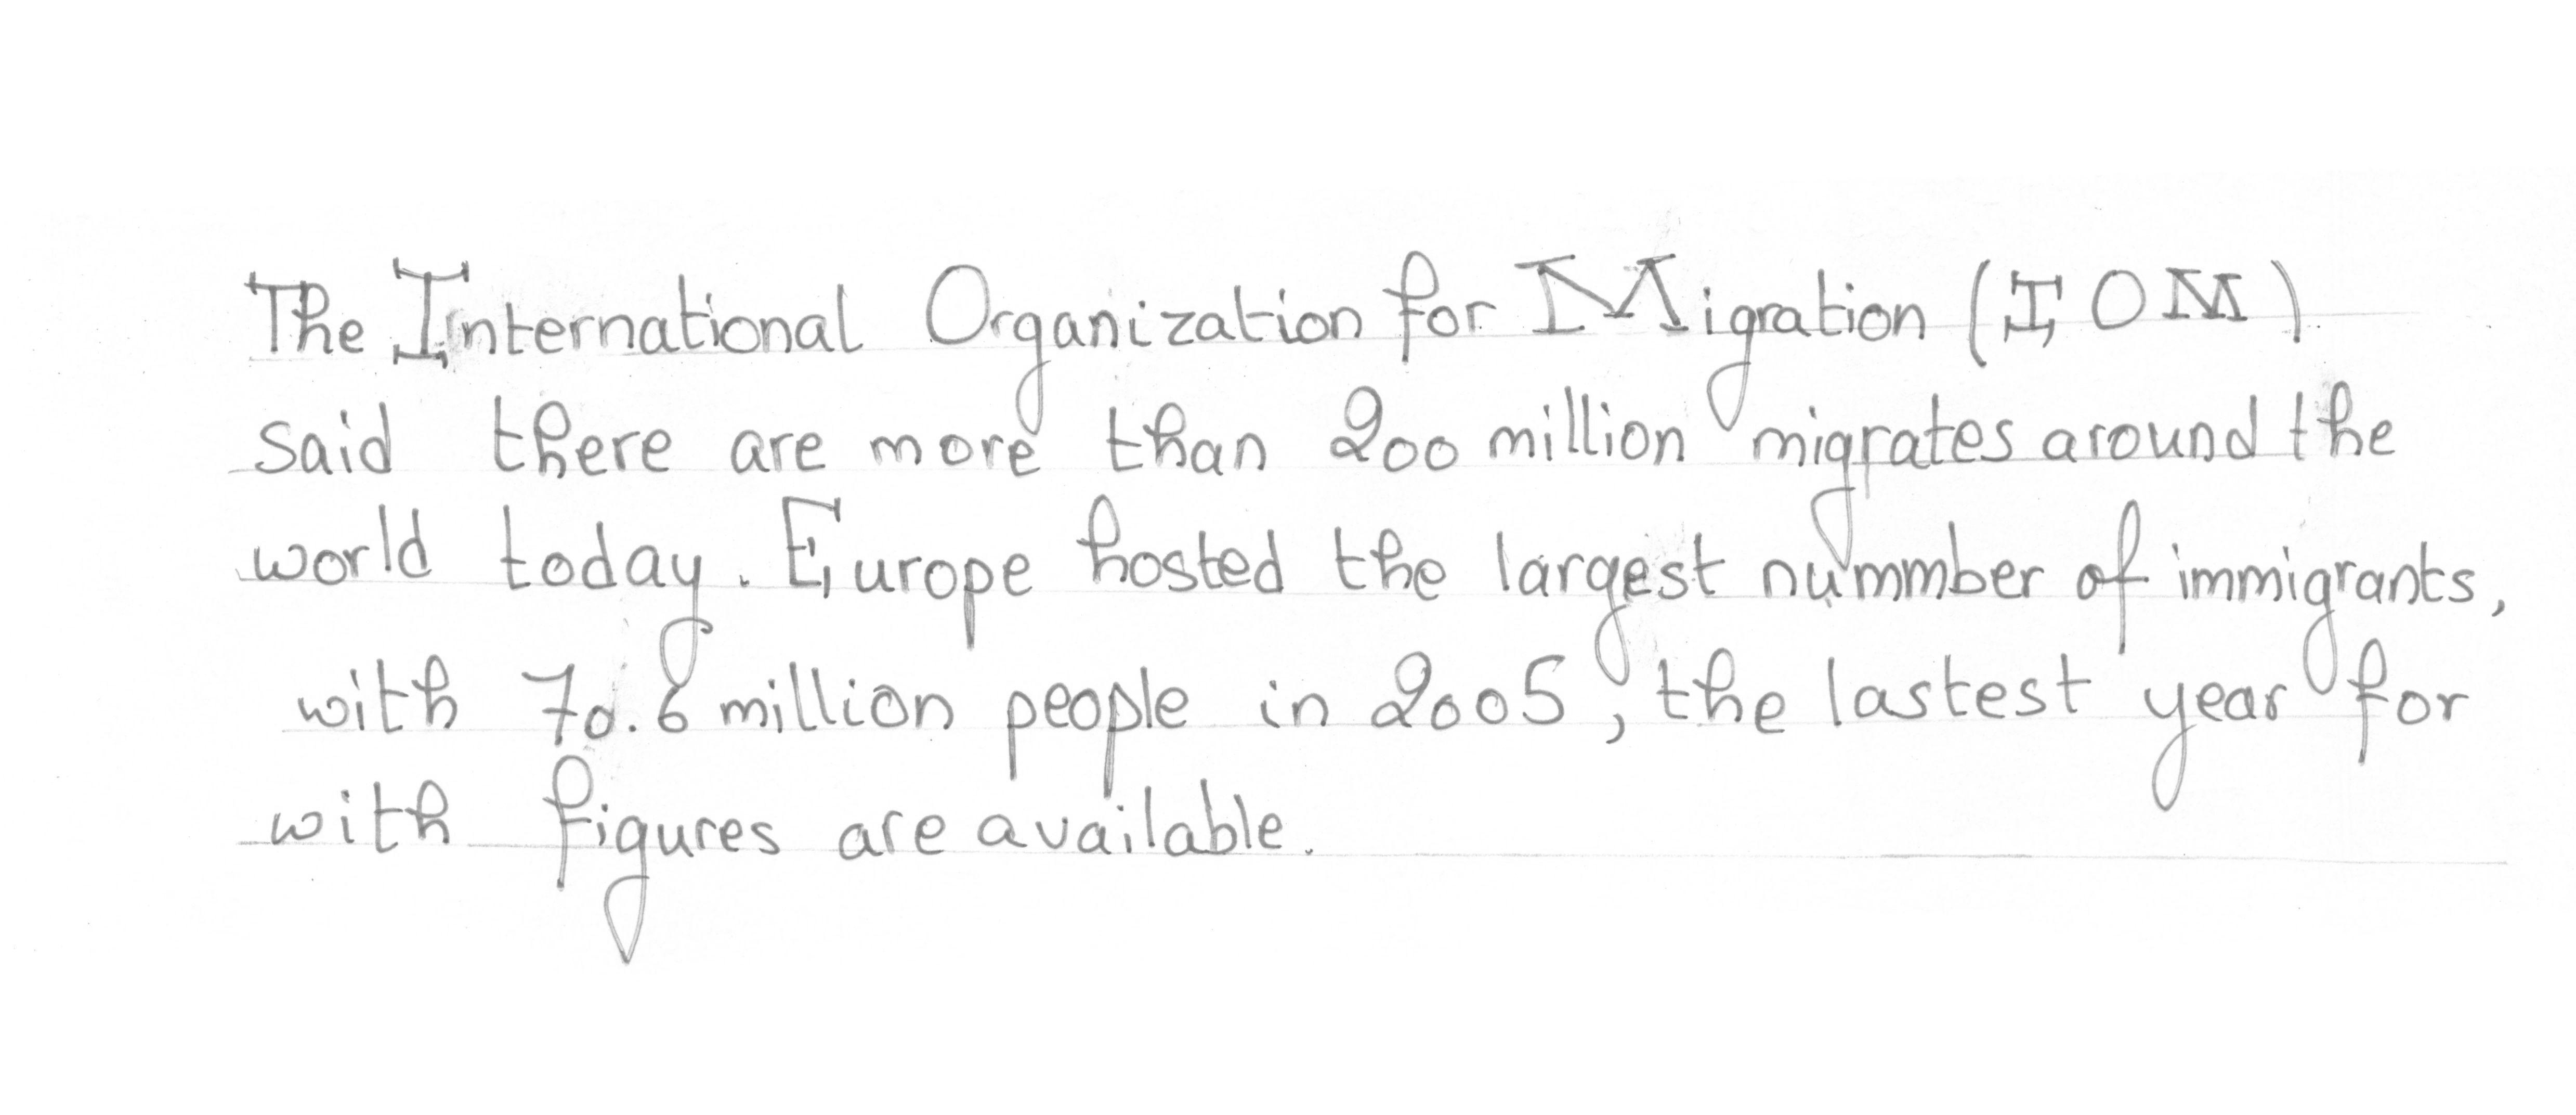 The International Organization for Migration (IOM)
said there are more than 200 million migrates around the
world today. Europe hosted the largest nummber of immigrants,
with 70.6 million people in 2005, the lastest year for
with figures are available.